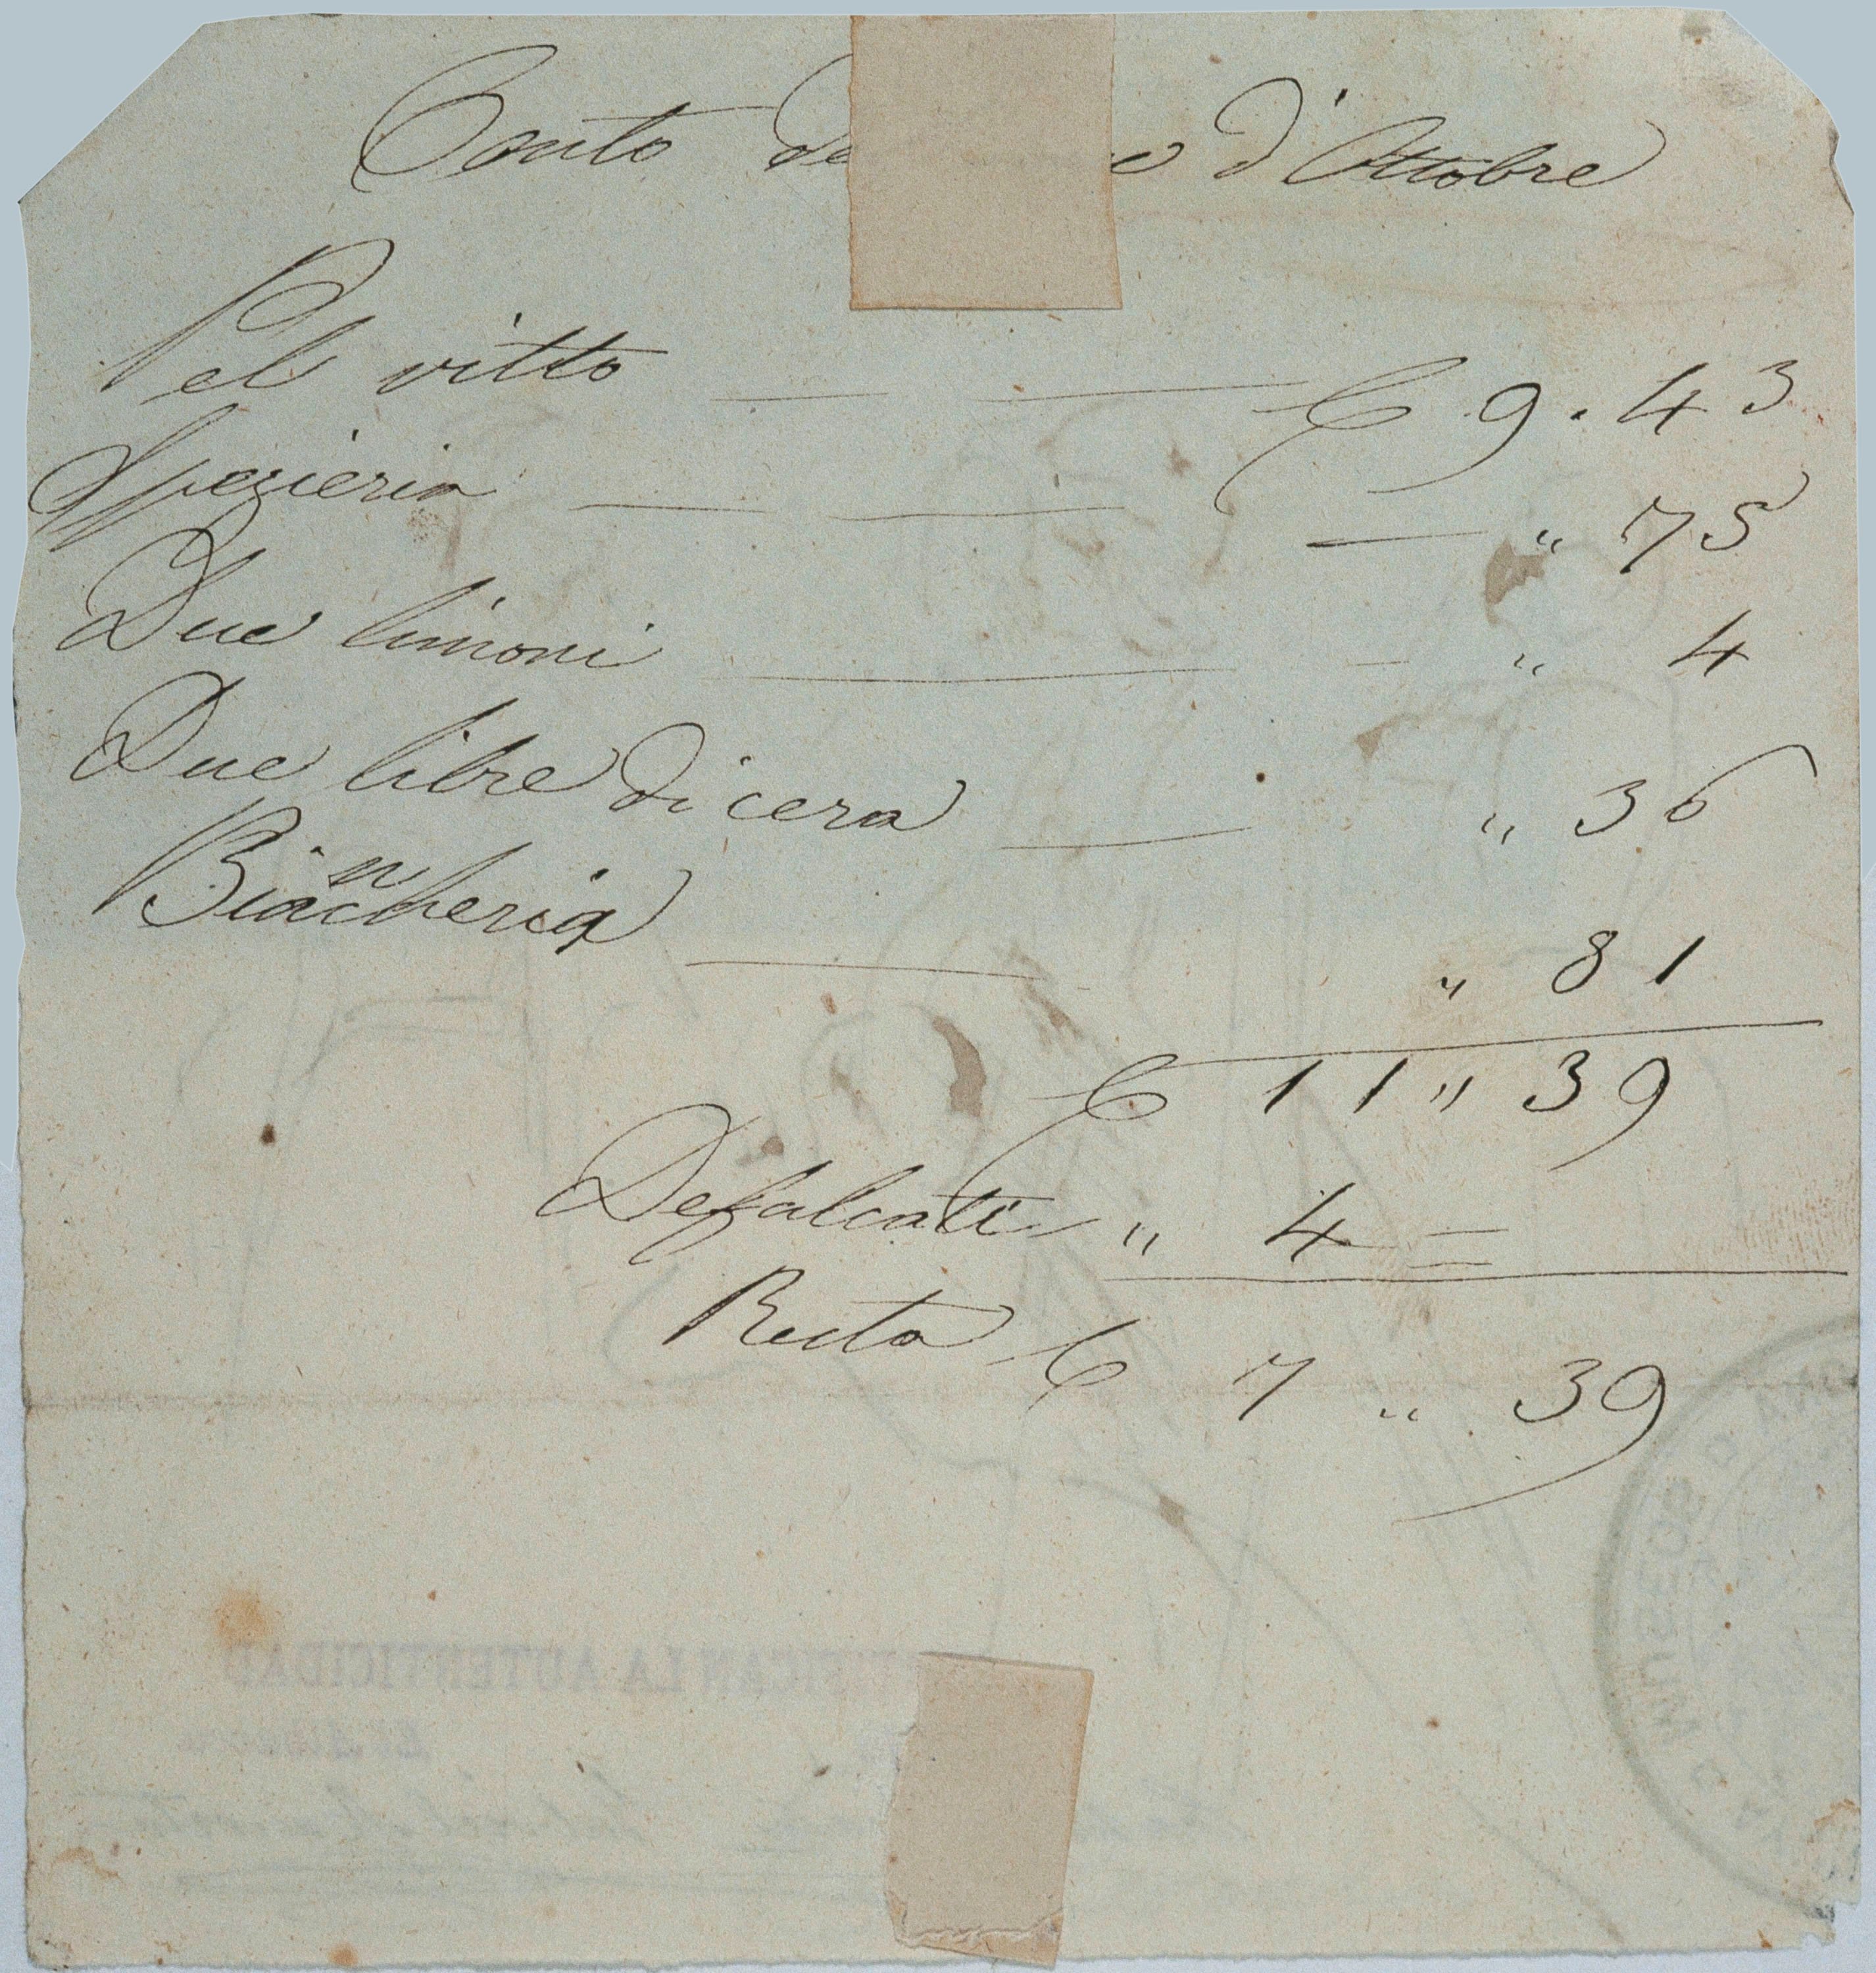 Conto de e d'Ottobre
Pel vitto — — £ 9 . 43
Spezieria — — — " 75
Due limoni — — " 4
Due libre di cera — " 36
Biancheria — " 81
£ 11 " 39
Defalcati " 4 =
Resta £ 7 " 39
LA AUTENTICIDAD